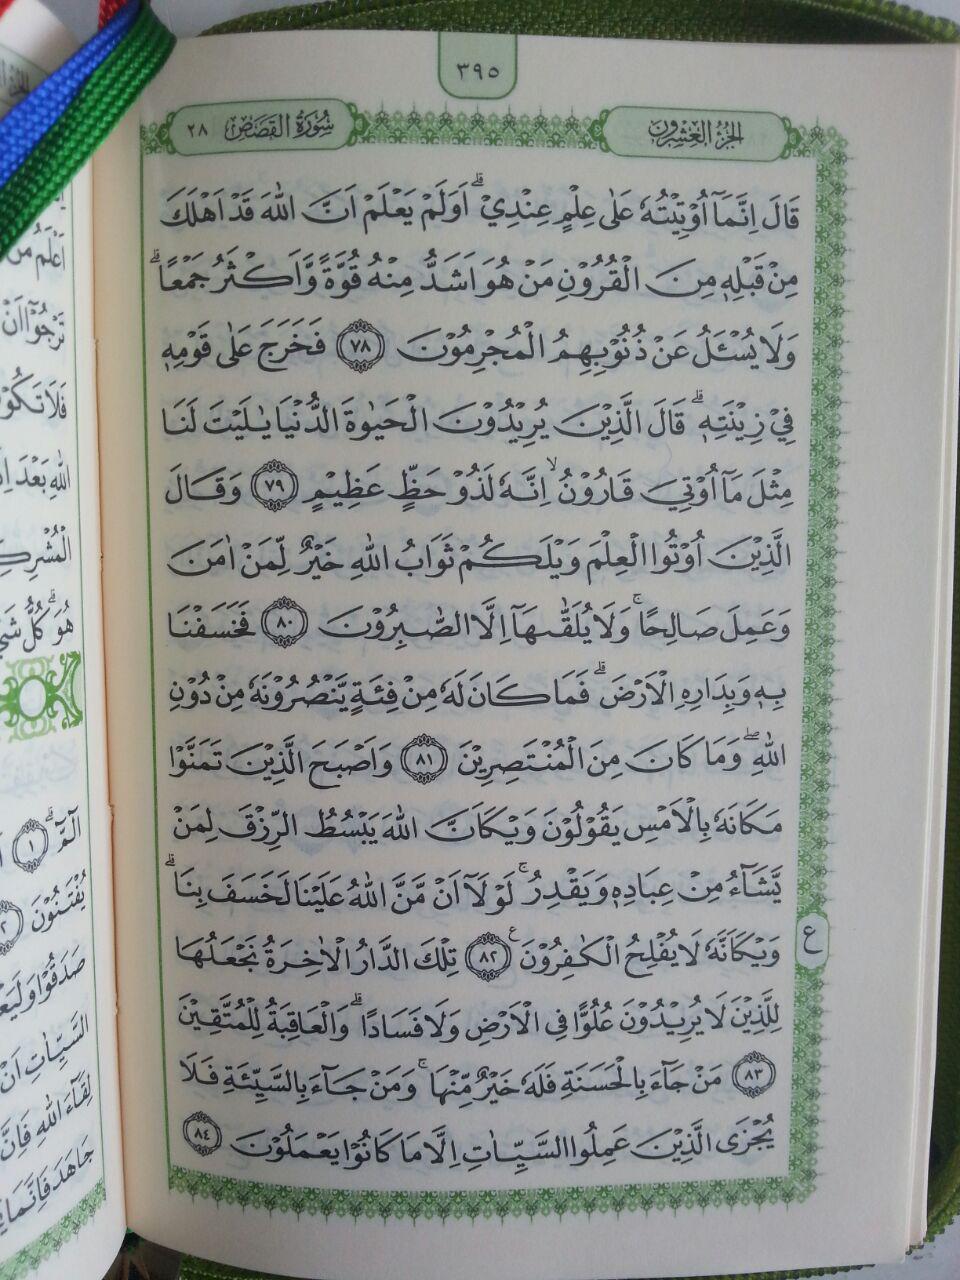 ٣٩٥
الجزء العشرون
سورة القصص ٢٨
قَالَ اِنَّمَآ اُوْتِيْتُهٗ عَلٰى عِلْمٍ عِنْدِيْۗ اَوَلَمْ يَعْلَمْ اَنَّ اللّٰهَ قَدْ اَهْلَكَ
مِنْ قَبْلِهٖ مِنَ الْقُرُوْنِ مَنْ هُوَ اَشَدُّ مِنْهُ قُوَّةً وَّاَكْثَرُ جَمْعًاۗ
وَلَا يُسْـَٔلُ عَنْ ذُنُوْبِهِمُ الْمُجْرِمُوْنَ ٧٨ فَخَرَجَ عَلٰى قَوْمِهٖ
فِيْ زِيْنَتِهٖۗ قَالَ الَّذِيْنَ يُرِيْدُوْنَ الْحَيٰوةَ الدُّنْيَا يٰلَيْتَ لَنَا
مِثْلَ مَآ اُوْتِيَ قَارُوْنُۙ اِنَّهٗ لَذُوْ حَظٍّ عَظِيْمٍ ٧٩ وَقَالَ
الَّذِيْنَ اُوْتُوا الْعِلْمَ وَيْلَكُمْ ثَوَابُ اللّٰهِ خَيْرٌ لِّمَنْ اٰمَنَ
وَعَمِلَ صَالِحًاۚ وَلَا يُلَقّٰىهَآ اِلَّا الصّٰبِرُوْنَ ٨٠ فَخَسَفْنَا
بِهٖ وَبِدَارِهِ الْاَرْضَۗ فَمَا كَانَ لَهٗ مِنْ فِئَةٍ يَّنْصُرُوْنَهٗ مِنْ دُوْنِ
اللّٰهِۖ وَمَا كَانَ مِنَ الْمُنْتَصِرِيْنَ ٨١ وَاَصْبَحَ الَّذِيْنَ تَمَنَّوْا
مَكَانَهٗ بِالْاَمْسِ يَقُوْلُوْنَ وَيْكَاَنَّ اللّٰهَ يَبْسُطُ الرِّزْقَ لِمَنْ
يَّشَاۤءُ مِنْ عِبَادِهٖ وَيَقْدِرُۚ لَوْلَآ اَنْ مَّنَّ اللّٰهُ عَلَيْنَا لَخَسَفَ بِنَاۗ
وَيْكَاَنَّهٗ لَا يُفْلِحُ الْكٰفِرُوْنَ ٨٢ ࣖ تِلْكَ الدَّارُ الْاٰخِرَةُ نَجْعَلُهَا
ع
لِلَّذِيْنَ لَا يُرِيْدُوْنَ عُلُوًّا فِى الْاَرْضِ وَلَا فَسَادًاۗ وَالْعَاقِبَةُ لِلْمُتَّقِيْنَ
٨٣ مَنْ جَاۤءَ بِالْحَسَنَةِ فَلَهٗ خَيْرٌ مِّنْهَاۚ وَمَنْ جَاۤءَ بِالسَّيِّئَةِ فَلَا
يُجْزَى الَّذِيْنَ عَمِلُوا السَّيِّاٰتِ اِلَّا مَا كَانُوْا يَعْمَلُوْنَ ٨٤
تَرْجُوْٓا اَنْ
اللّٰهِ بَعْدَ
هُوَۗ كُلُّ
الۤمّۤۗ ١
يُفْتَنُوْنَ ٢
صَدَقُوْا
السَّيِّاٰتِ اَنْ
لِقَاۤءَ اللّٰهِ فَاِنَّ
جَاهَدَ فَاِنَّمَا